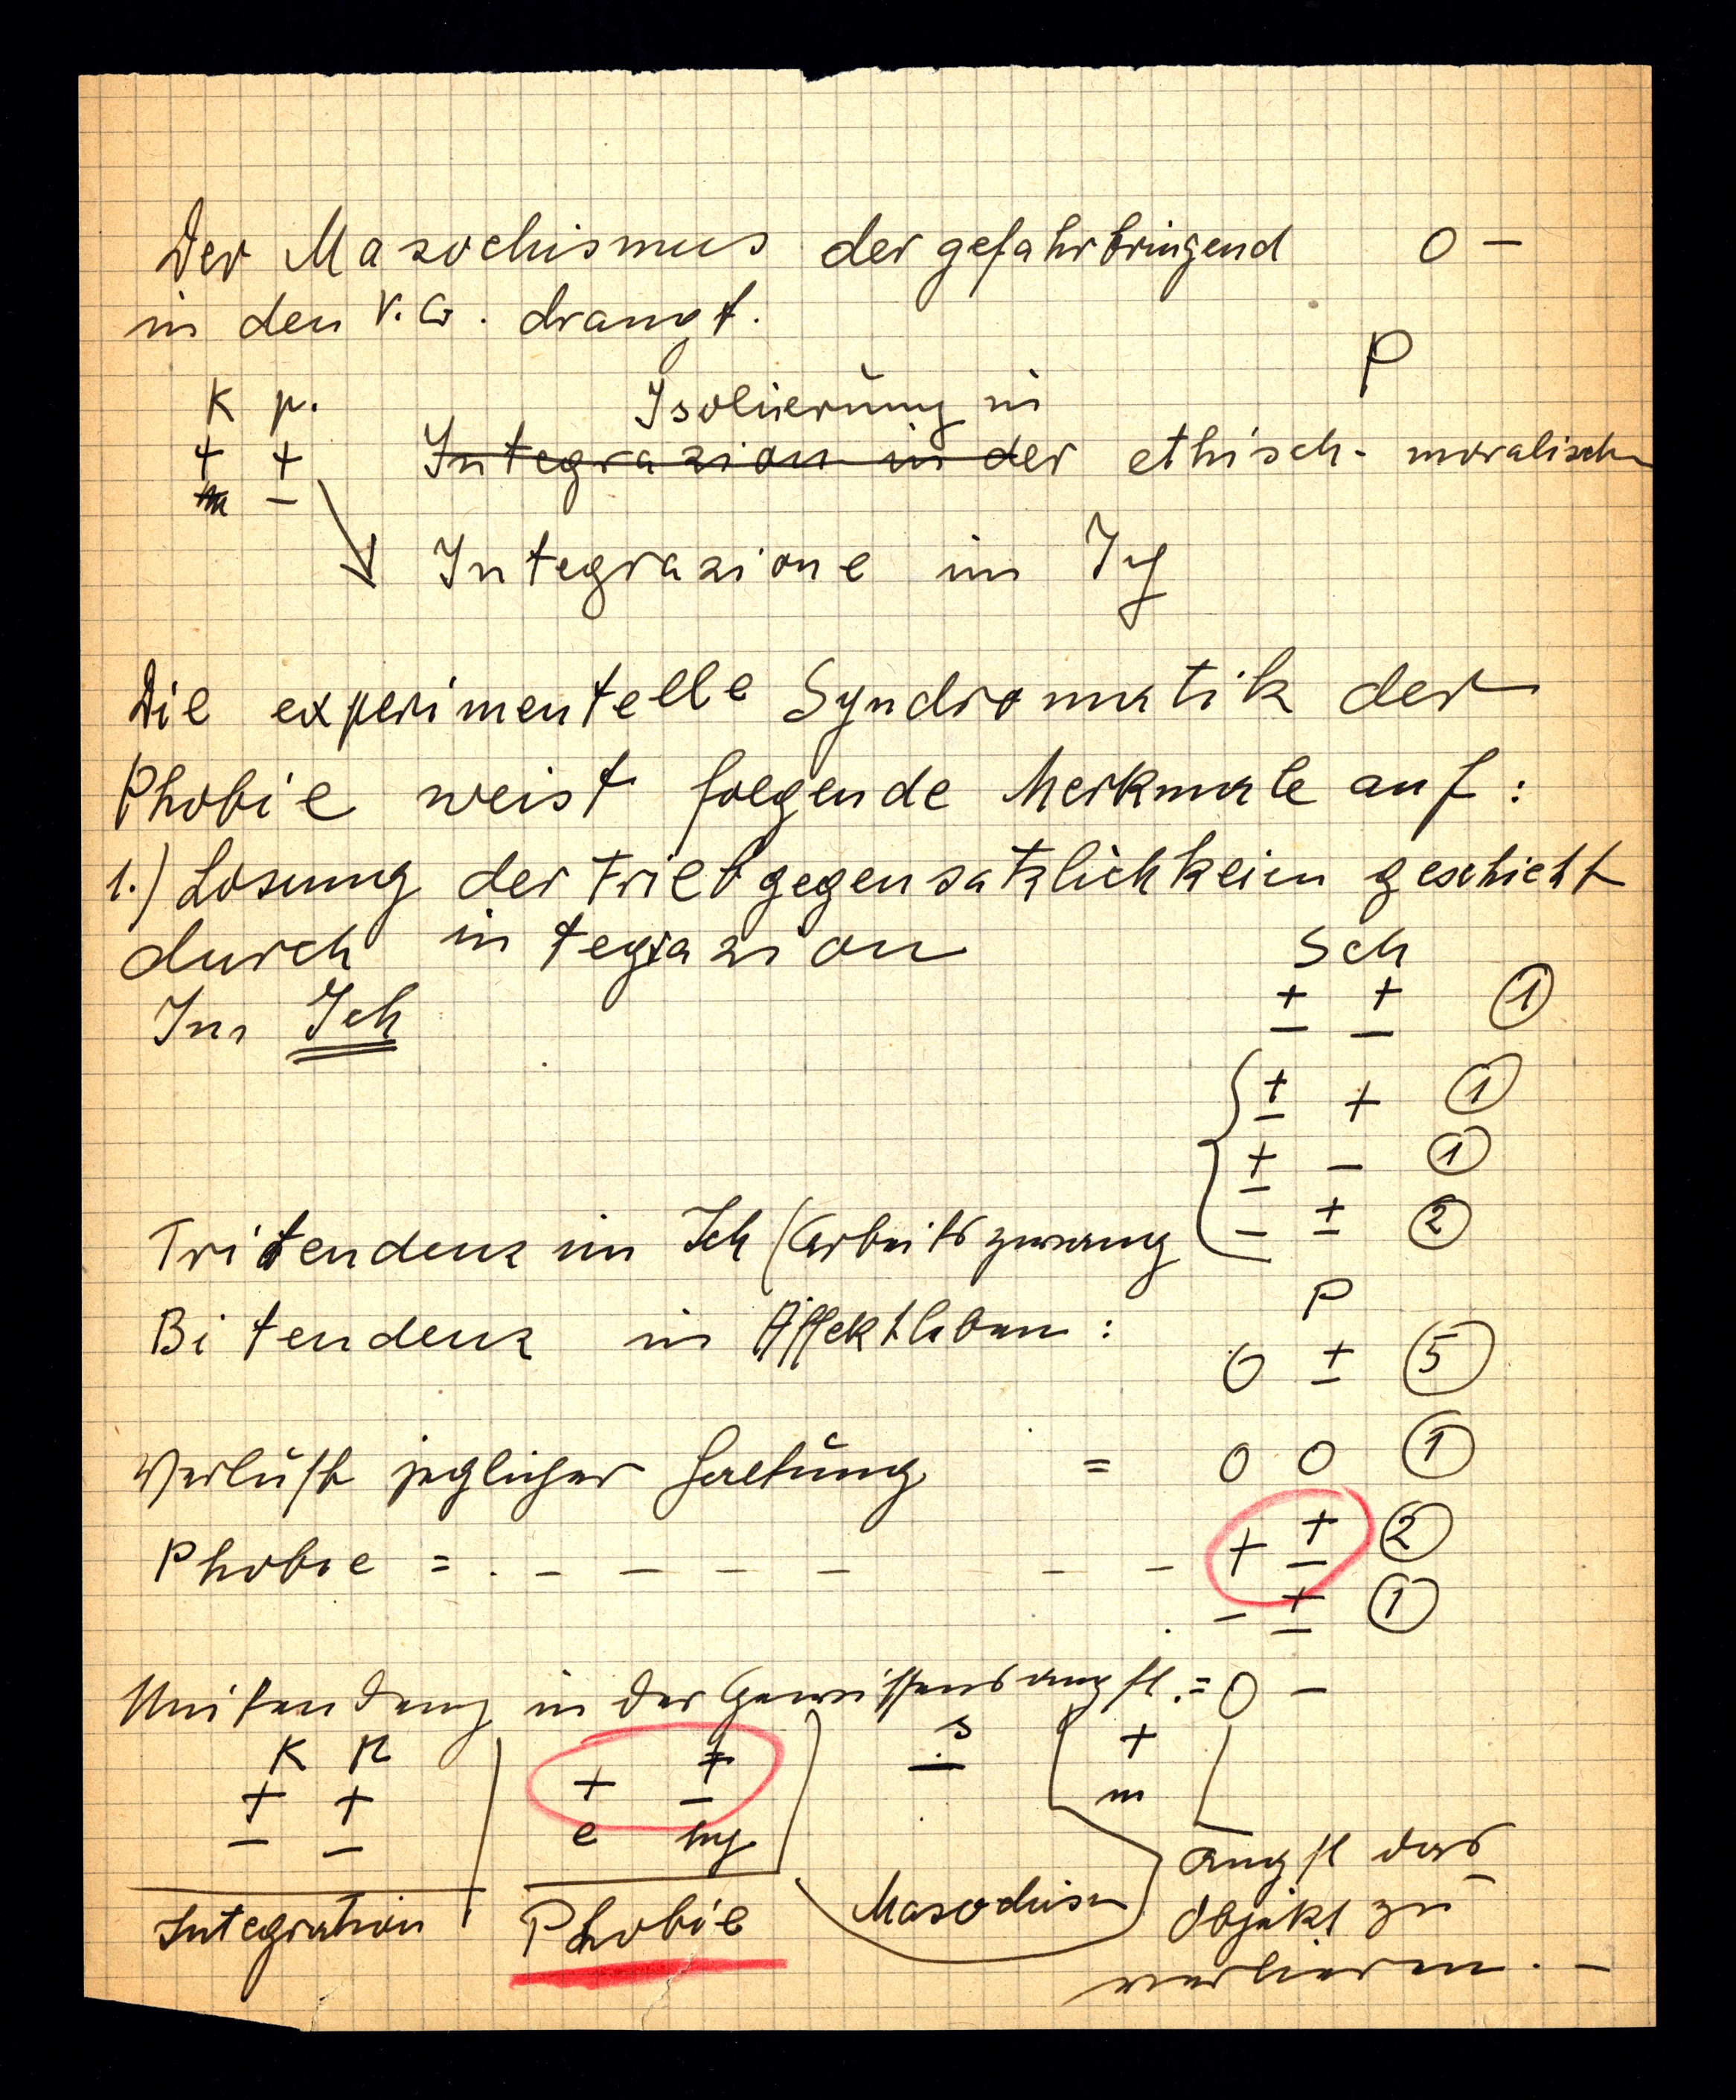 Der Masochismus der gefahrbringend 0 –
in den V.G. drangt.
P
K p.
Isolierung in
+ + Integrazion in der ethisch- moralisch
–
Integrazione im Ich
Die experimentelle Syndromatik der
Phobie weist folgende Merkmale auf:
1.) Losung der Triebgegensätzlichkeien geschieht
durch integrazion
Sch
Im Ich ± ± ①
± + ①
± – ①
Tritendenz im Ich (Arbeitszwang – ± ②
P
Bitendenz im Affektleben: 0 ± ⑤
Verlust jeglicher Haltung = 0 0 ①
Phobie = . – – – – – – + ± ②
– ± ①
Unitendenz in der Gewissensangst. = 0 –
K p s +
± ± + ± – m
e hy
Angst das
Integration Phobie Masochism Objekt zu
verlieren. –